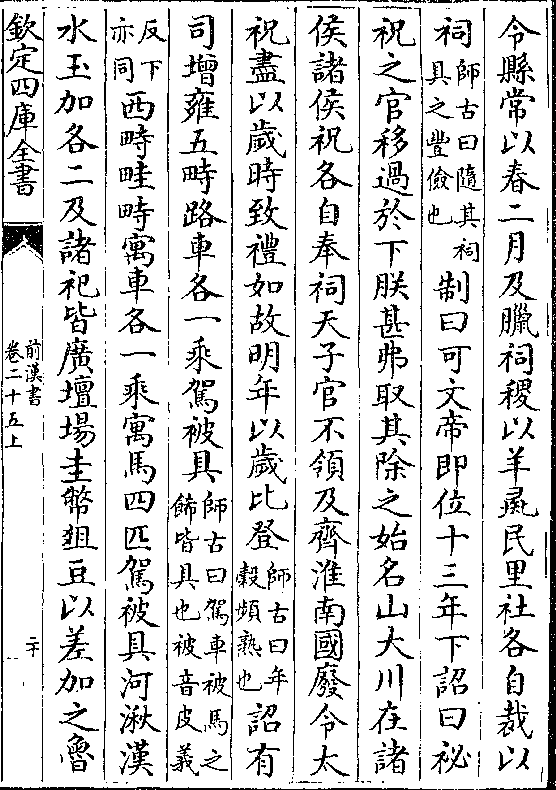 令縣常以春二月及臘祠稷以羊彘民里社各自裁以
祠師古曰隨其祠具之豐儉也制曰可文帝即位十三年下詔曰祕
祝之官移過於下朕甚弗取其除之始名山大川在諸
侯諸侯祝各自奉祠天子官不領及齊淮南國廢令太
祝盡以歲時致禮如故明年以歲比登師古曰年穀頻熟也詔有
司增雍五畤路車各一乘駕被具師古曰駕車被馬之飾皆具也被音皮義
反下亦同西畤畦畤寓車各一乘寓馬四匹駕被具河湫漢
水玉加各二及諸祀皆廣壇場圭幣俎豆以差加之魯
欽定四庫全書
前漢書
卷二十五上
二十